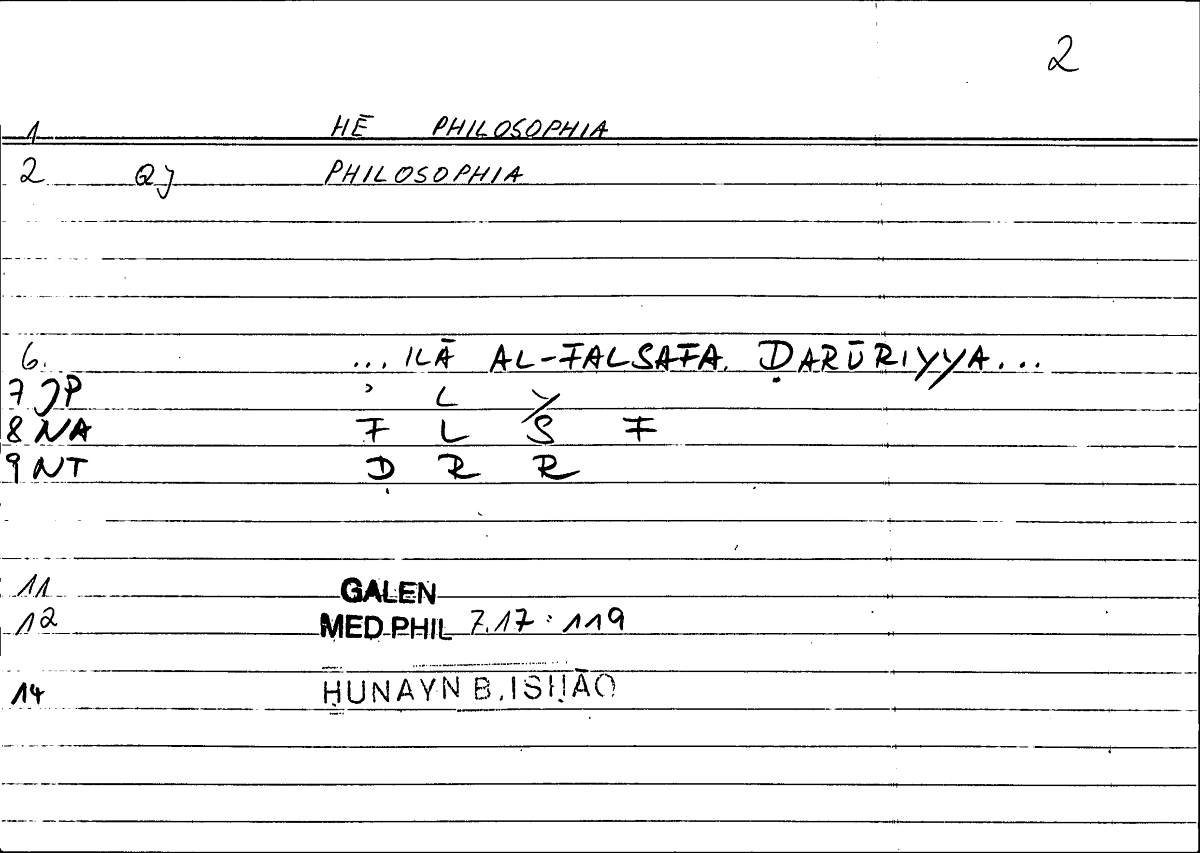 2
1 HĒ PHILOSOPHIA
2 QJ PHILOSOPHIA
6. ... ILĀ AL-FALSAFA ḌARŪRIYYA...
7 JP ʾ L Y
8 NA F L S F
9 NT Ḍ R R
11 GALEN
12 MED PHIL 7.17 : 119
14 ḤUNAYN B. ISḤĀQ